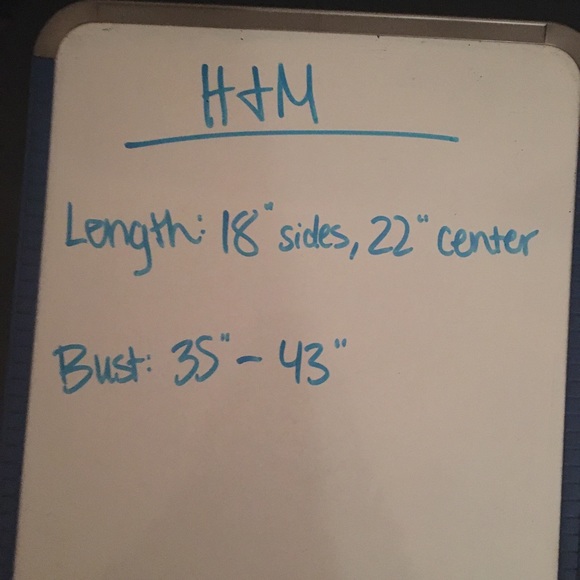 H&M
Length: 18" sides, 22" center
Bust: 35" - 43"